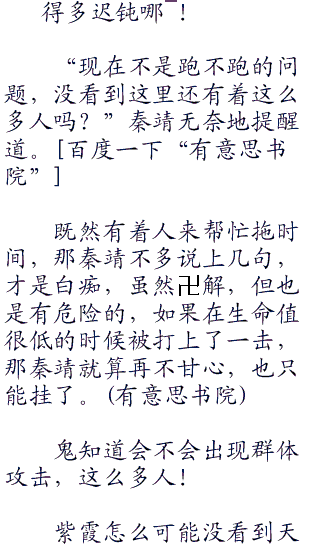 得多迟钝哪¯！
“现在不是跑不跑的问
题，没看到这里还有着这么
多人吗？”秦靖无奈地提醒
道。[百度一下“有意思书
院”]
既然有着人来帮忙拖时
间，那秦靖不多说上几句，
才是白痴，虽然卍解，但也
是有危险的，如果在生命值
很低的时候被打上了一击，
那秦靖就算再不甘心，也只
能挂了。(有意思书院)
鬼知道会不会出现群体
攻击，这么多人！
紫霞怎么可能没看到天